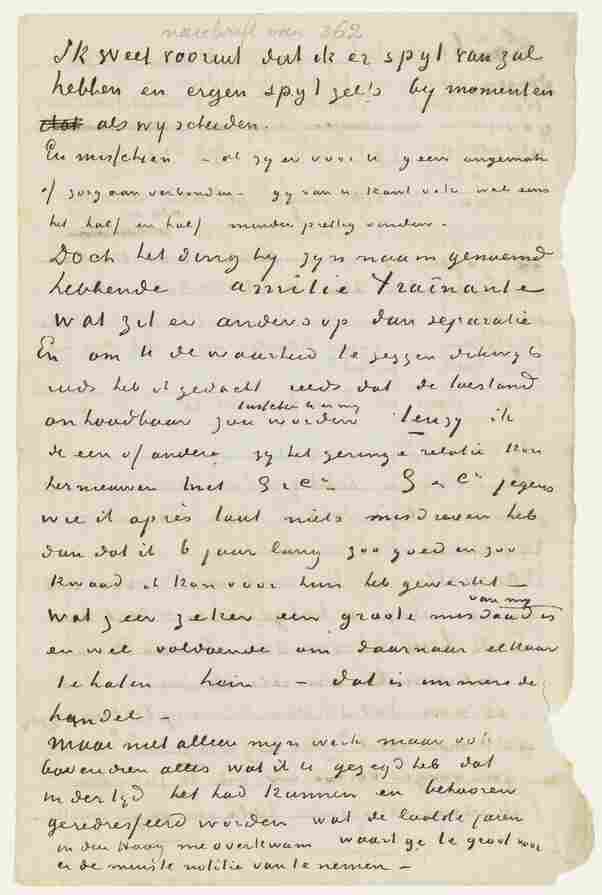 naschrift van 362
Ik weet vooruit dat ik er spyt van zal
hebben en ergen spyt zelfs by momenten
dat als wy scheiden.
En misschien – al zy er voor U geen ongemak
of zorg aan verbonden – gy van U kant ook wel eens
het half en half minder prettig vinden –
Doch het ding by zyn naam genoemd
hebbende amitié trainante
wat zit er anders op dan separatie
En om U de waarheid te zeggen dikwyls
reeds heb ik gedacht reeds dat de toestand
onhoudbaar zou worden tusschen U en my tenzy ik
de een of andere zy het geringe relatie kon
hernieuwen met G & Cie G & Cie jegens
wie ik après tout niets misdreven heb
dan dat ik 6 jaar lang zoo goed en zoo
kwaad ik kon voor hun heb gewerkt –
Wat zeer zeker een groote misdaad van my is
en wel voldoende om daarnaar elkaar
te haten – dat is immers de
handel –
Maar niet alleen myn werk maar ook
bovendien alles wat ik U gezegd heb dat
in der tyd het had kunnen en behooren
geredresseerd worden wat de laatste jaren
in den Haag me overkwam waart ge te groot voor
er de minste notitie van te nemen –